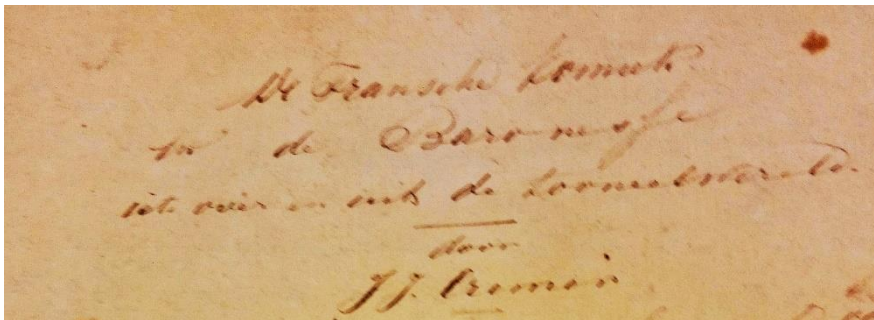 De Fransche
en de Baronesse
iets over en uit de tooneelwereld.
door
J. J. Cremer